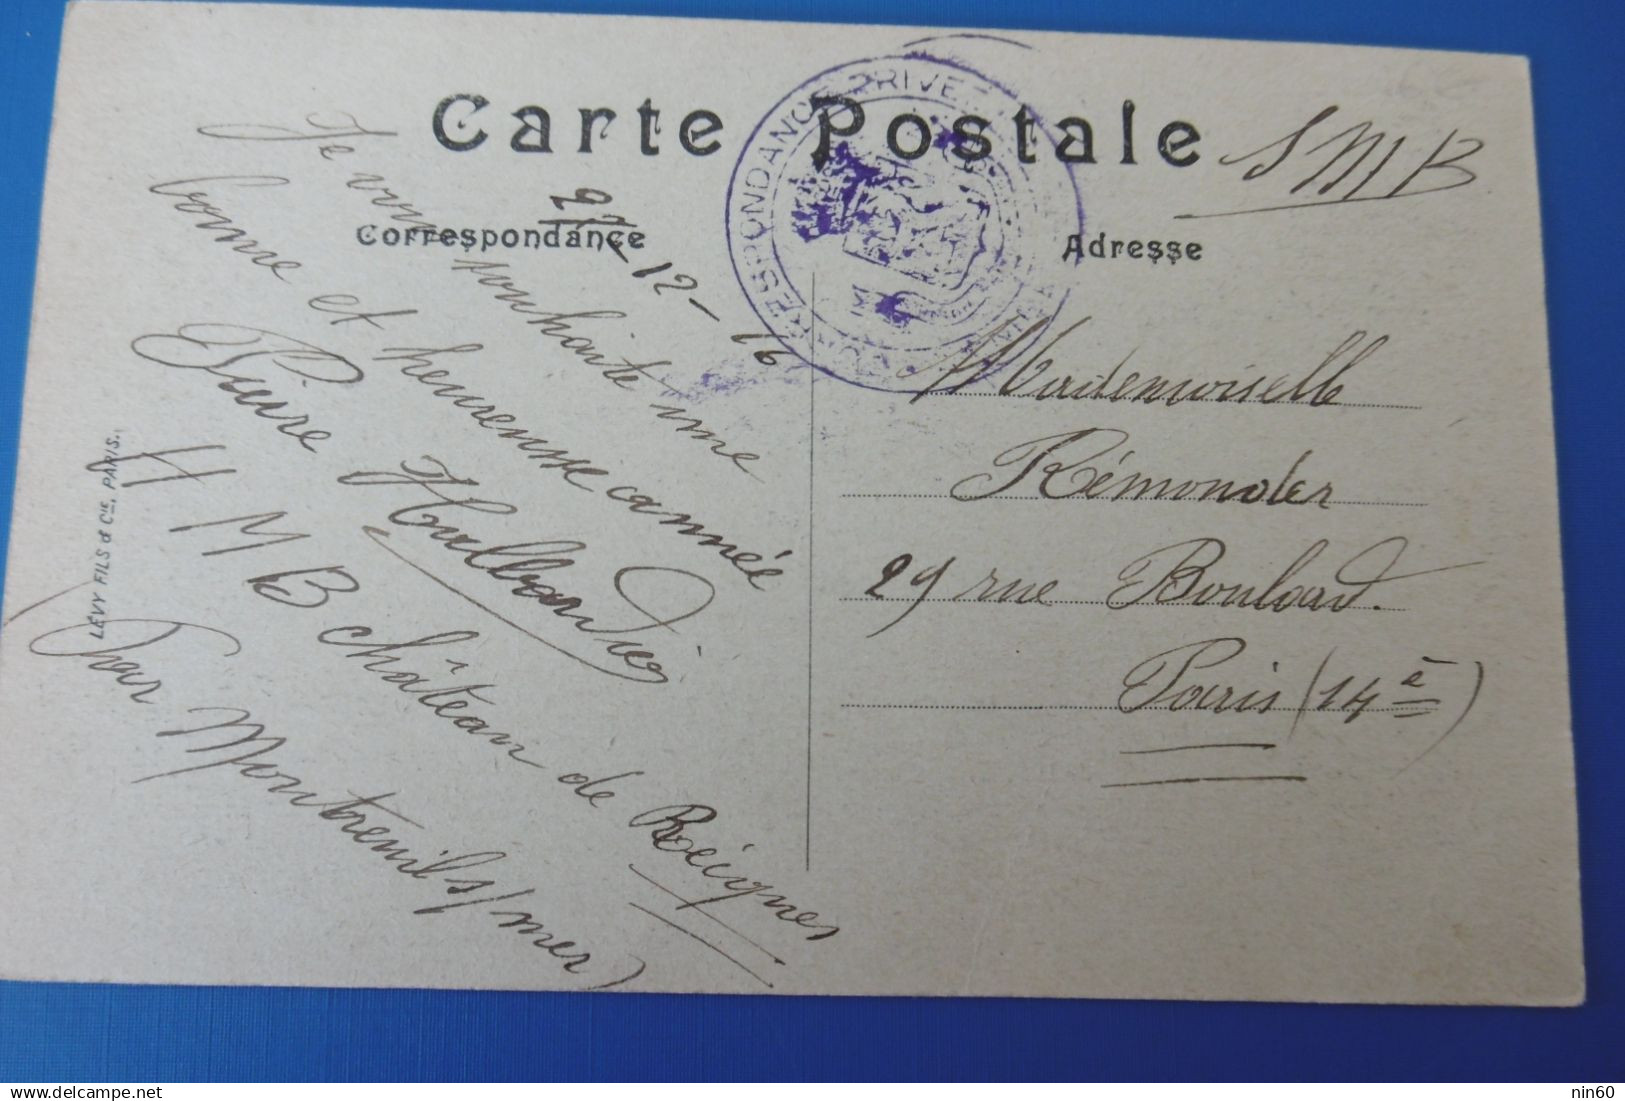 Carte Postale
SMB
Correspondance
Adresse
CORRESPONDANCE PRIVÉE
27-12-16
Je vous souhaite une
bonne et heureuse année
H M B château de Recques
(par Montreuil s/mer)
Mademoiselle
Rémonder
29 rue Boulard.
Paris (14e)
LÉVY FILS & Cie, PARIS.
nin60